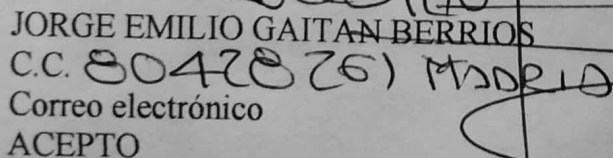 JORGE EMILIO GAITAN BERRIOS
C.C. 80428261 MADRID
Correo electrónico
ACEPTO